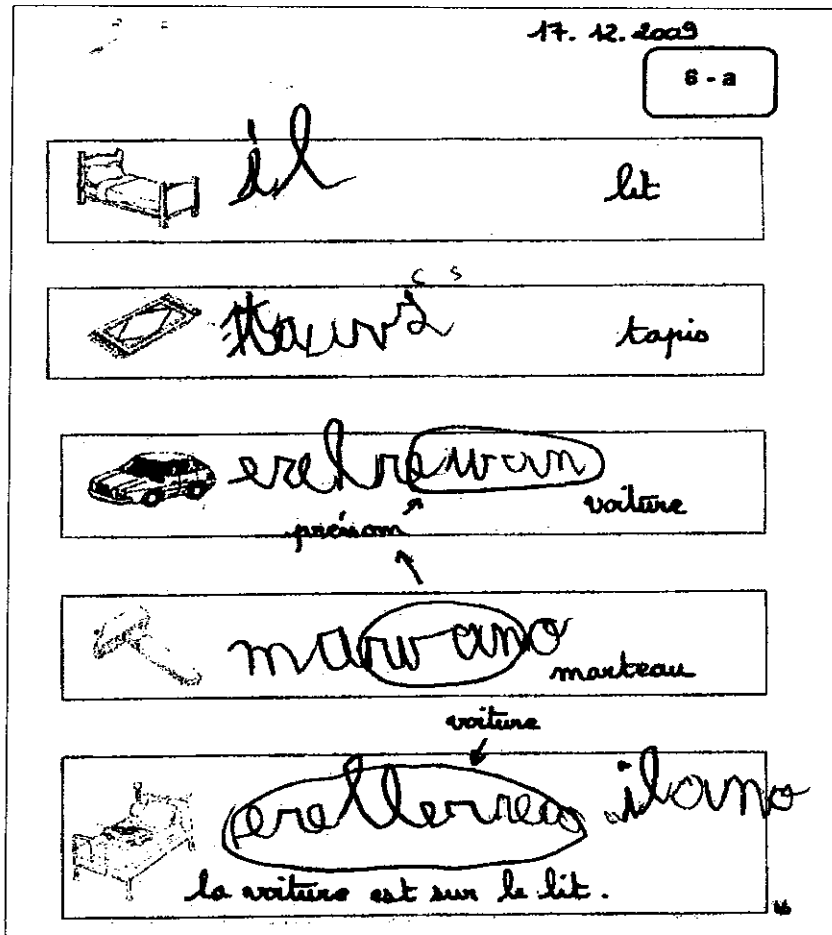 17. 12. 2009
6 - a
il lit
c s
tapis
erelrewan
voiture
prénom
marwano
marteau
voiture
erellerreo ilano
la voiture est sur le lit.